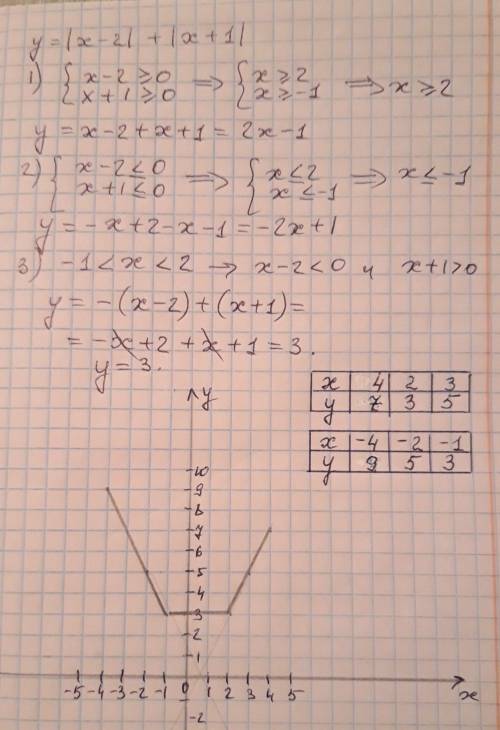 y = |x-2| + |x+1|
1) { x-2 ≥ 0 ⟹ { x ≥ 2 ⟹ x ≥ 2
x+1 ≥ 0 x ≥ -1
y = x-2+x+1 = 2x-1
2) { x-2 ≤ 0 ⟹ { x ≤ 2 ⟹ x ≤ -1
x+1 ≤ 0 x ≤ -1
y = -x+2-x-1 = -2x+1
3) -1 < x < 2 → x-2 < 0 и x+1 > 0
y = -(x-2)+(x+1) =
= -x+2+x+1 = 3.
y = 3.
x 4 2 3
y 7 3 5
x -4 -2 -1
y 9 5 3
y
10
9
8
7
6
5
4
3
2
1
-5 -4 -3 -2 -1 0 1 2 3 4 5 x
-2